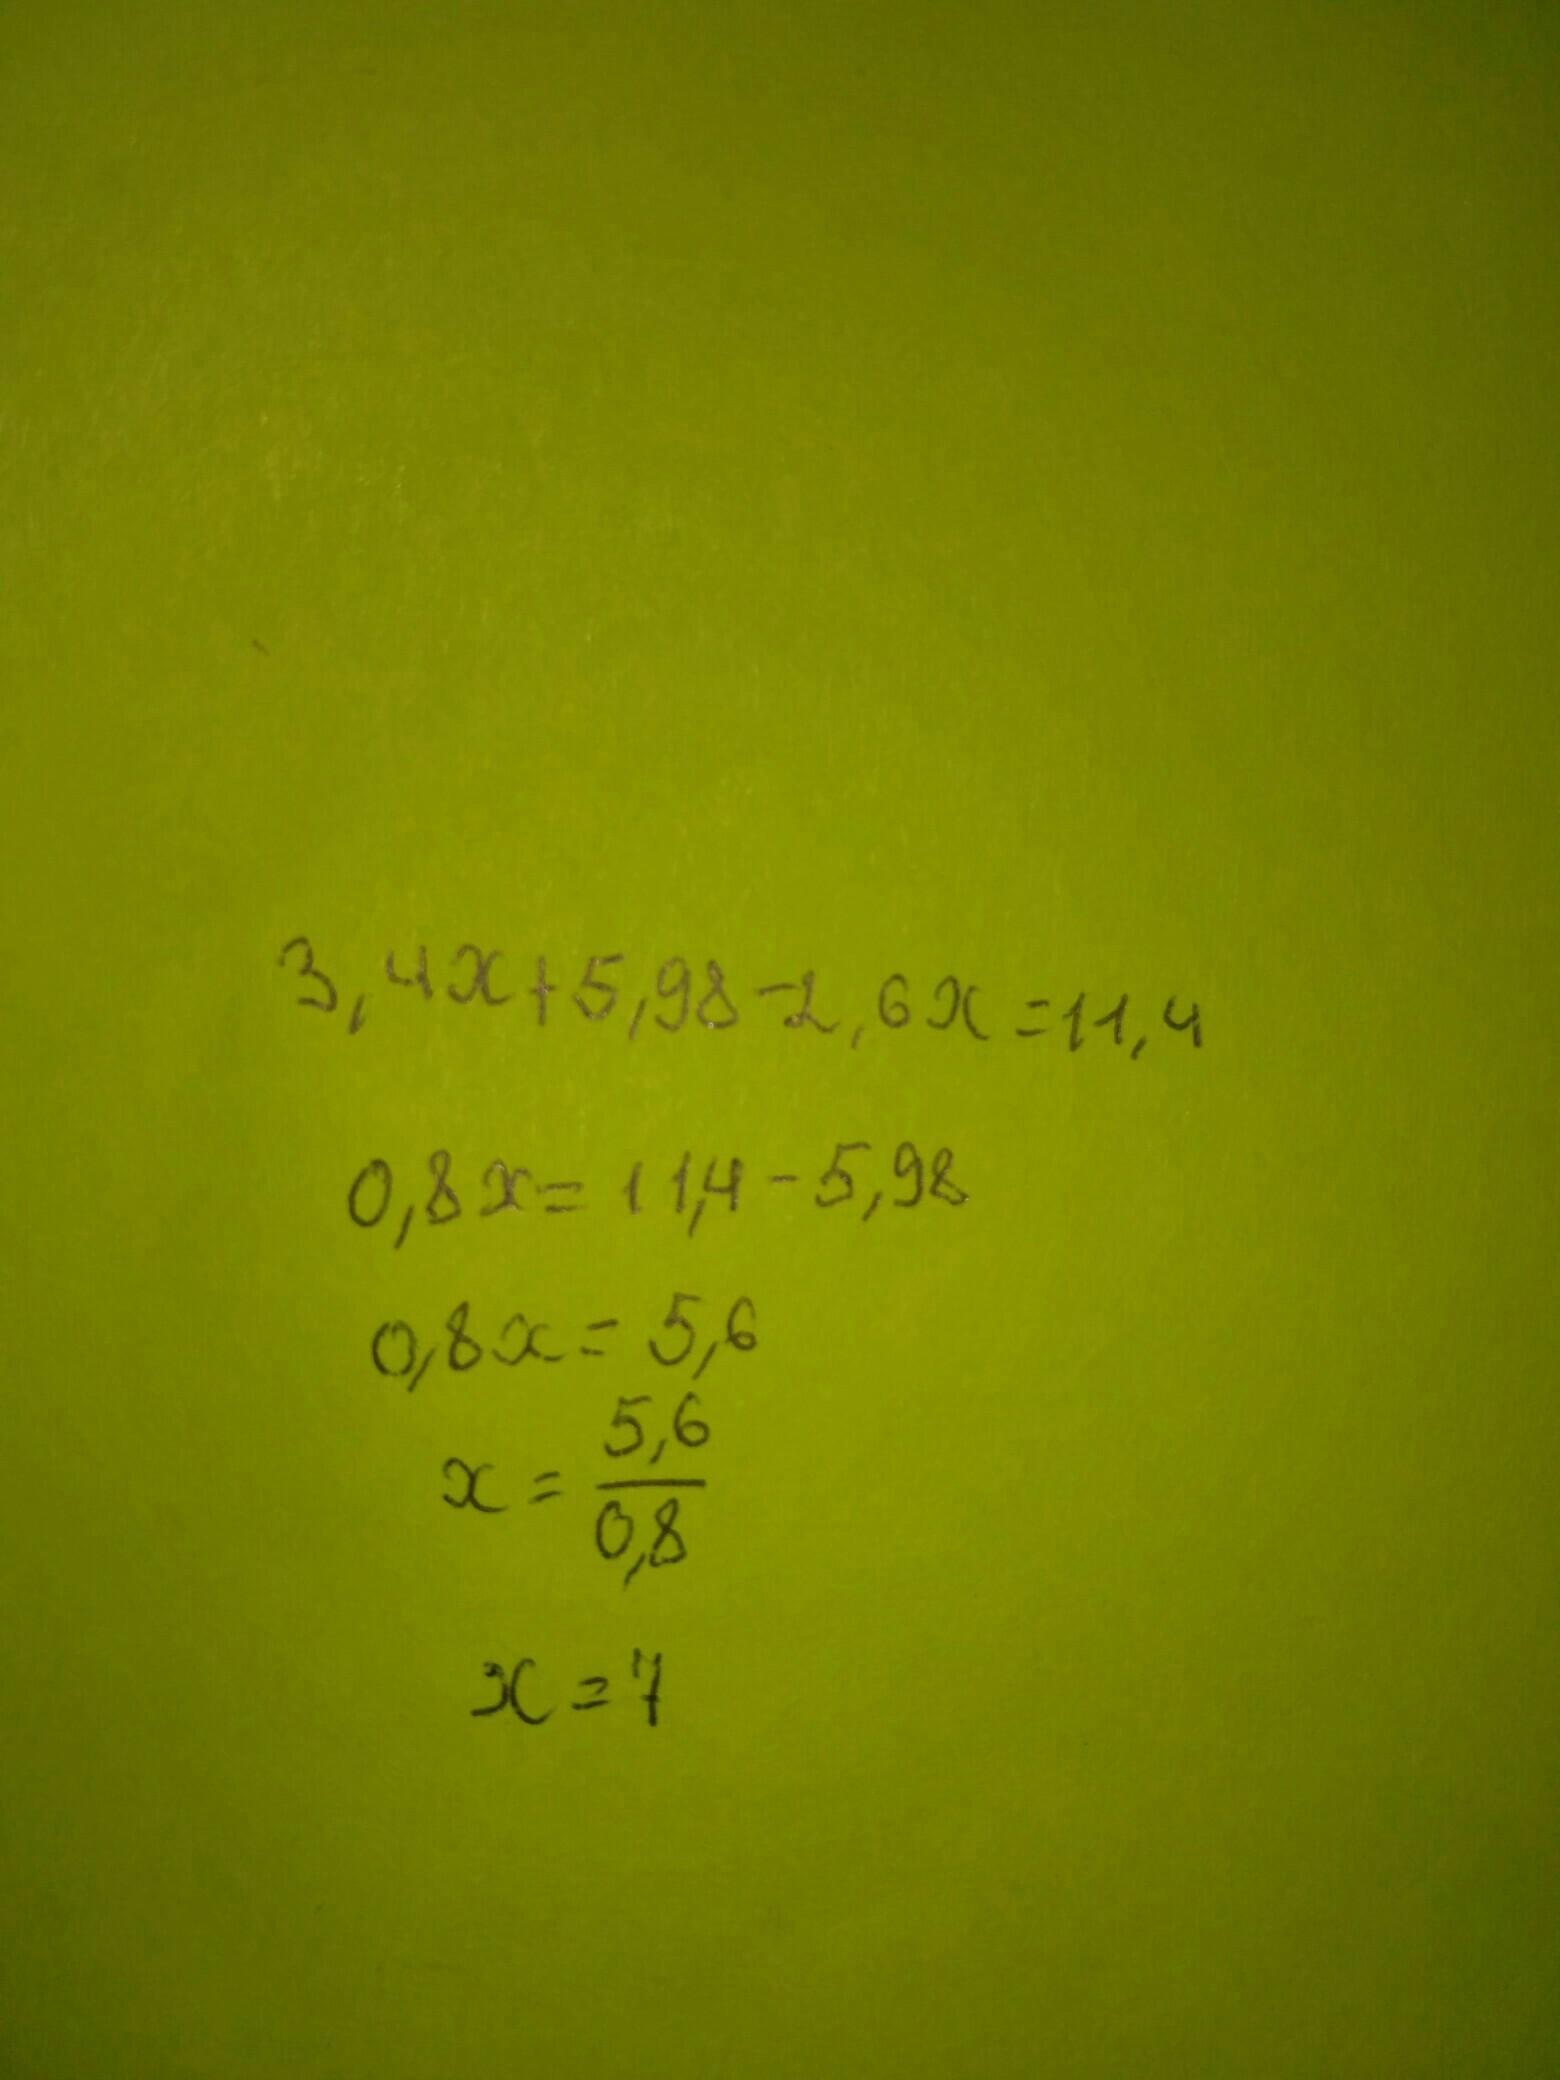 3,4x+5,98-2,6x=11,4
0,8x=11,4-5,98
0,8x=5,6
x=5,6/0,8
x=7